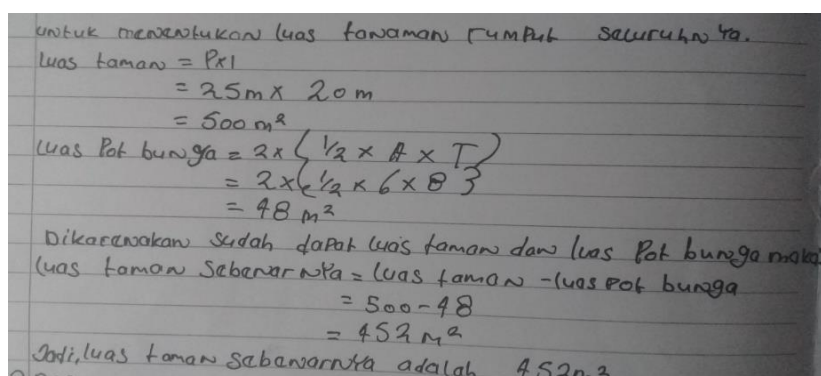 untuk menentukan luas tanaman rumput seluruhnya.
luas taman = P x l
= 25m x 20m
= 500 m²
luas Pot bunga = 2 x ( 1/2 x A x T )
= 2 x ( 1/2 x 6 x 8 )
= 48 m²
Dikarenakan sudah dapat luas taman dan luas Pot bunga maka
luas taman sebenarnya = luas taman - luas pot bunga
= 500 - 48
= 452 m²
Jadi, luas taman sebenarnya adalah 452m²